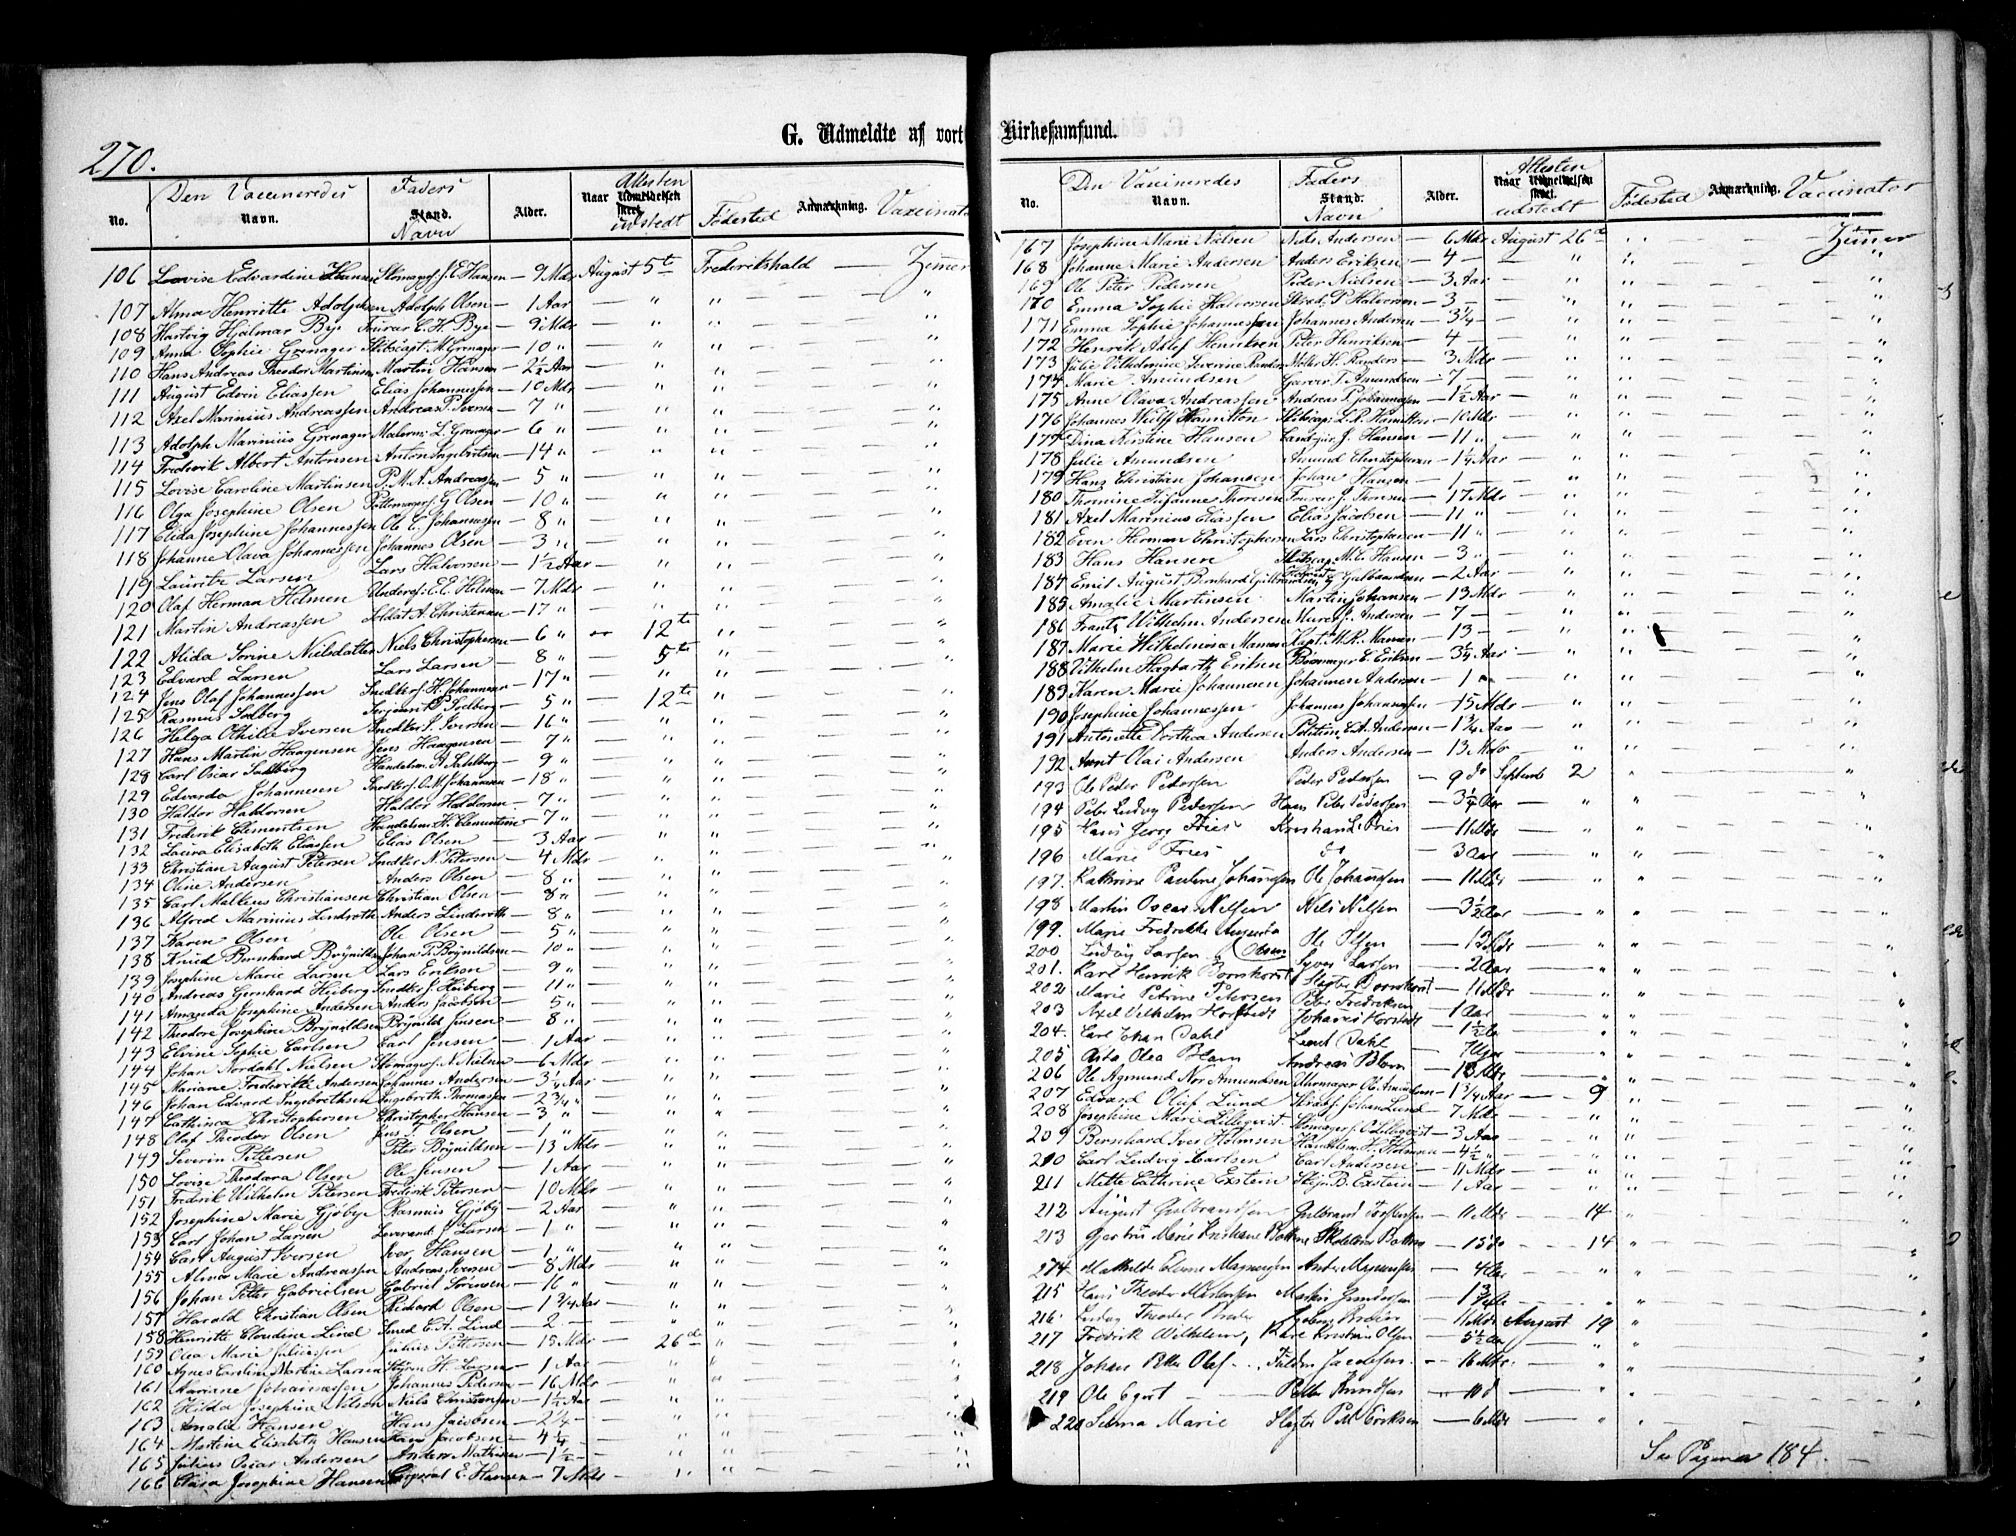 270.
G. Udmeldte af vort Kirkesamfund.
No. Den Vaccineredes Navn. Faders Stand. Navn Alder. Naar Attesten Udmeldelsen skeet. udstedt Fødested Anmærkning. Vaccinator
106 Lovise Edvardine Hansen Skomagerf. J. E. Hansen — 9 Mdr August 5te Frederikshald — Zimer
107 Alma Henriette Adolphsen Adolph Olsen — 1 Aar — " "
108 Hartvig Hjalmar Bye Furer C. H. Bye — 9 Mdr — " "
109 Anna Sophie Grenager Skibscapt. M. Grenager — 10 " — " "
110 Hans Andreas Theodor Martinsen Martin Hansen — 2½ Aar — " "
111 August Edvin Eliassen Elias Johannessen — 10 Mdr — " "
112 Axel Marinius Andreassen Andreas P. Iversen — 7 " — " "
113 Adolph Marinius Grenager Malerm: L. Grenager — 6 " — " "
114 Frederik Albert Antonsen Anton Ingebretsen — 14 " — " "
115 Lovise Caroline Martinsen P. M. A. Andreassen — 5 " — " "
116 Olga Josephine Olsen Pottemagerf. G. Olsen — 10 " — " "
117 Elida Josephine Johannessen Ole C. Johannessen — 8 " — " "
118 Johanne Olava Johannessen Johannes Olsen — 3 " — " "
119 Lauritz Larsen Lars Halvorsen — 1½ Aar — " "
120 Olaf Herman Helmen Underof. E. E. Helmen — 7 Mdr — " "
121 Martin Andreassen Soldat A. Christensen — 17 " — " "
122 Alida Sorine Nielsdatter Niels Christophersen — 6 " — 12te "
123 Edvard Larsen Lars Larsen — 8 " — 5te "
124 Jens Olaf Johannessen Snedkerf. H. Johannessen — 17 " — " "
125 Rasmus Solberg Sergeant P. Solberg — 5 " — 12te "
126 Helga Othilie Iversen Snedker J. Iversen — 16 " — " "
127 Hans Martin Haagensen Jens Haagensen — 7 " — " "
128 Carl Oscar Sahlberg Handelsm. A. Sahlberg — 9 " — " "
129 Edvarda Johannessen Snedkerf. O. M. Johannessen — 18 " — " "
130 Haldor Haldorsen Haldor Haldorsen — 7 " — " "
131 Frederik Clementsen Handelsm. H. Clementsen — 7 " — " "
132 Laura Elisabeth Eliassen Elias Olsen — 3 Aar — " "
133 Christian August Petersen Snedker N. Petersen — 4 Mdr — " "
134 Oline Andersen Anders Olsen — 8 " — " "
135 Carl Malleus Christiansen Christian Olsen — 8 " — " "
136 Alfred Marinius Linderoth Anders Linderoth — 8 " — " "
137 Karen Olsen Ole Olsen — 5 " — " "
138 Knud Bernhard Brynildsen Johan F. Brynildsen — 10 " — " "
139 Josephine Marie Larsen Lars Eriksen — 9 " — " "
140 Andreas Gernhard Heiberg Snedker J. Heiberg — 11 " — " "
141 Amanda Josephine Andersen Anders Jacobsen — 5 " — " "
142 Theodore Josephine Brynildsen Brynild Jensen — 8 " — " "
143 Elvine Sophie Carlsen Carl Jensen — 1 Aar — " "
144 Johan Nordahl Nielsen Skomagerf. N. Nielsen — 6 Mdr — " "
145 Mariane Frederikke Andersen Johannes Andersen — 3¼ Aar — " "
146 Johan Edvard Ingebrethsen Ingebreth Thomassen — 2¾ " — " "
147 Cathinca Christophersen Christopher Hansen — 3 " — " "
148 Olaf Theodor Olsen Jens J. Olsen — 1 " — " "
149 Severin Pettersen Peter Brynildsen — 13 Mdr — " "
150 Lovise Theodora Olsen Ole Jensen — 1 Aar — " "
151 Frederik Wilhelm Petersen Frederik Petersen — 10 Mdr — " "
152 Josephine Marie Gjøbye Rasmus Gjøby — 2 Aar — " "
153 Carl Johan Larsen Leverand. J. Larsen — 1 " — " "
154 Carl August Iversen Iver Hansen — 1 " — " "
155 Alma Marie Andreassen Andreas Iversen — 8 Mdr — " "
156 Johan Petter Gabrielsen Gabriel Sørensen — 16 " — " "
157 Harald Christian Olsen Richard Olsen — 1¾ Aar — " "
158 Henriette Claudine Lind Smed C. A. Lind — 2 — " "
159 Olea Marie Juliussen Julius Pettersen — 15 Mdr — 26de "
160 Agnes Caroline Martine Larsen Styrm H. Larsen — 1 Aar — " "
161 Mariane Johannessen Johannes Pedersen — 16 Mdr — " "
162 Hilda Josephine Nilsen Niels Christensen — 1½ Aar — " "
163 Amalie Hansen Hans Jacobsen — 2¼ — " "
164 Martine Elisabeth Hansen Hans Jacobsen — 4¼ — " "
165 Julius Oscar Andersen Anders Mathisen — 1½ — " "
166 Clara Josephine Hansen Corporal E. Hansen — 7 Mdr — " "
No. Den Vaccineredes Navn. Faders Stand. Navn Alder. Naar Attesten Udmeldelsen skeet. udstedt Fødested Anmærkning. Vaccinator
167 Josephine Marie Nielsen Niels Andersen — 6 Mdr August 26de " Zimer
168 Johanne Marie Andersen Anders Eriksen — 4 — " "
169 Ole Peter Pedersen Peder Nielsen — 3 Aar — " "
170 Emma Sophie Halvorsen Skræd. P. Halvorsen — 3 — " "
171 Emma Sophie Johannessen Johannes Andersen — 3¼ — " "
172 Henrik Adlef Henriksen Peter Henriksen — 4 — " "
173 Julie Vilhelmine Severine Randers Møller H. Randers — 3 Mdr — " "
174 Marie Amundsen Garver T. Amundsen — 7 — " "
175 Anne Olava Andreassen Andreas P. Johannessen — 1½ Aar — " "
176 Johannes Wulff Hamilton Skibscap. L. R. Hamilton — 10 Mdr — " "
177 Dina Kristine Hansen Landgjør J. Hansen — 11 " — " "
178 Julie Amundsen Amund Christophersen — 1¼ Aar — " "
179 Hans Christian Johansen Johan Hansen — 1 — " "
180 Thomine Susanne Thoresen Fourer J. Thoresen — 17 Mdr — " "
181 Axel Marinius Eliassen Elias Jacobsen — 11 " — " "
182 Even Herman Christophersen Lars Christophersen — 11 " — " "
183 Hans Hansen Skibscap. M. C. Hansen — 3 " — " "
184 Emil August Bernhard Gulbrandsen G. Gulbrandsen — 2 Aar — " "
185 Amalie Martinsen Martin Johansen — 13 Mdr — " "
186 Frants Wilhelm Andersen Murer J. Andersen — 7 — " "
187 Marie Wilhelmine Mamen Capt. M. R. Mamen — 13 — " "
188 Vilhelm Hagbarth Eriksen Bøssmager C. Eriksen — 3¾ Aar — " "
189 Karen Marie Johannesen Johannes Andersen — 1 " — " "
190 Josephine Johannessen Johannes Johannessen — 15 Mdr — " "
191 Antonette Dorthea Andersen Politim. E. A. Andersen — 1¾ Aar — " "
192 Arnt Olai Andersen Anders Andersen — 13 Mdr — " "
193 Ole Peder Pedersen Peder Pedersen — 9 do Septemb 2 "
194 Peter Ludvig Pedersen Hans Peter Pedersen — 3¼ Aar — " "
195 Hans Georg Fries Kristian L. Fries — 11 Mdr — " "
196 Marie Fries do — 3 Aar — " "
197. Kathrine Pauline Johansen Ole Johansen — 11 Mdr — " "
198 Martin Oscar Nilsen Nils Nilsen — 3½ Aar — " "
199. Marie Fredrikke Augusta (Olsen Ole Olsen — 13 Mdr — " "
200 Ludvig Larsen Syver Larsen — 2 Aar — " "
201. Karl Henrik Bornkorst Slagter Bornkorst — 11 Mdr — " "
202 Marie Petrine Petersen Peter Fredriksen — 1 Aar — " "
203 Axel Vilhelm Horstedt Johannes Horstedt — 1½ Aar — " "
204. Carl Johan Dahl Leut Dahl — 7 Uger — " "
205 Asta Olea Blom Andreas Blom — 18 Mdr — " "
206 Ole Agmund Nor Amundsen Uhrmager Ol. Amundsen — 1¾ Aar — 9 "
207. Edvard Oluf Lund Skrædf. Johan Lund — 7 Mdr — " "
208 Josephine Marie Lilleqvist Skomagerf. O. Lilleqvist — 3 Aar — " "
209 Bernhard Iver Holmsen Handelsm. H. Holmsen — 4½ " — " "
210 Carl Ludvig Carlsen Carl Andersen — 11 Mdr — " "
211 Mette Cathrine Exstein Skipr B. Exstein — 1 Aar — " "
212 August Gulbrandsen Gulbrand Torstensen — 11 Mdr — 14 "
213 Gjertru Marie Kristiane — 15 do — 14 "
214 Mathilde Elvine Magnussen Anders Magnussen — 4 Aar — " "
215 Hans Theodor Mortensen Martin Gundersen — 1¾ Aar — " "
216. Ludvig Theodor — 11 Mdr August 19 "
217 Fredrik Wilhelm, Kristian Olsen — 5½ Aar — " "
218 Johan Petter Olaf — Jacobsen — 16 Mdr. — " "
219 Ole Egert — Petter Knudsen — 10 d — " "
220 Selma Marie Slagter P. M. Eriksen — 6 Mdr — " "
See Pagina 184. —